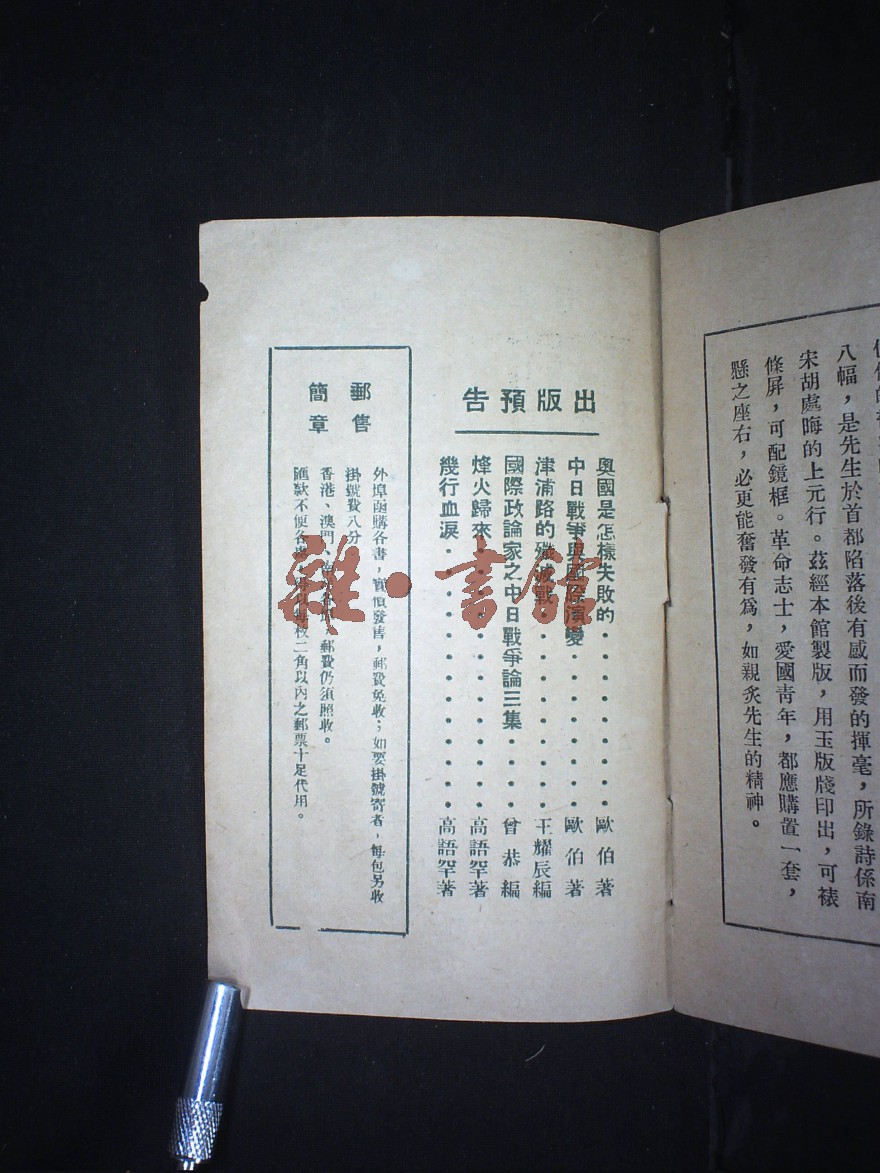 八幅，是先生於首都陷落後有感而發的揮毫，所錄詩係南
宋胡處晦的上元行。茲經本館製版，用玉版牋印出，可裱
條屏，可配鏡框。革命志士，愛國靑年，都應購置一套，
懸之座右，必更能奮發有爲，如親炙先生的精神。
出版預告
奧國是怎樣失敗的・・・・・・・・・歐伯著
中日戰爭與國際演變・・・・・・・・歐伯著
津浦路的殲滅戰・・・・・・・・・・王耀辰編
國際政論家之中日戰爭論三集・・・・曾恭編
烽火歸來・・・・・・・・・・・・・高語罕著
幾行血淚・・・・・・・・・・・・・高語罕著
郵售
簡章
外埠函購各書，實價發售，郵費免收；如要掛號寄者，每包另收
掛號費八分
香港、澳門、郵費仍須照收。
匯款不便各二角以內之郵票十足代用。
雜・書館